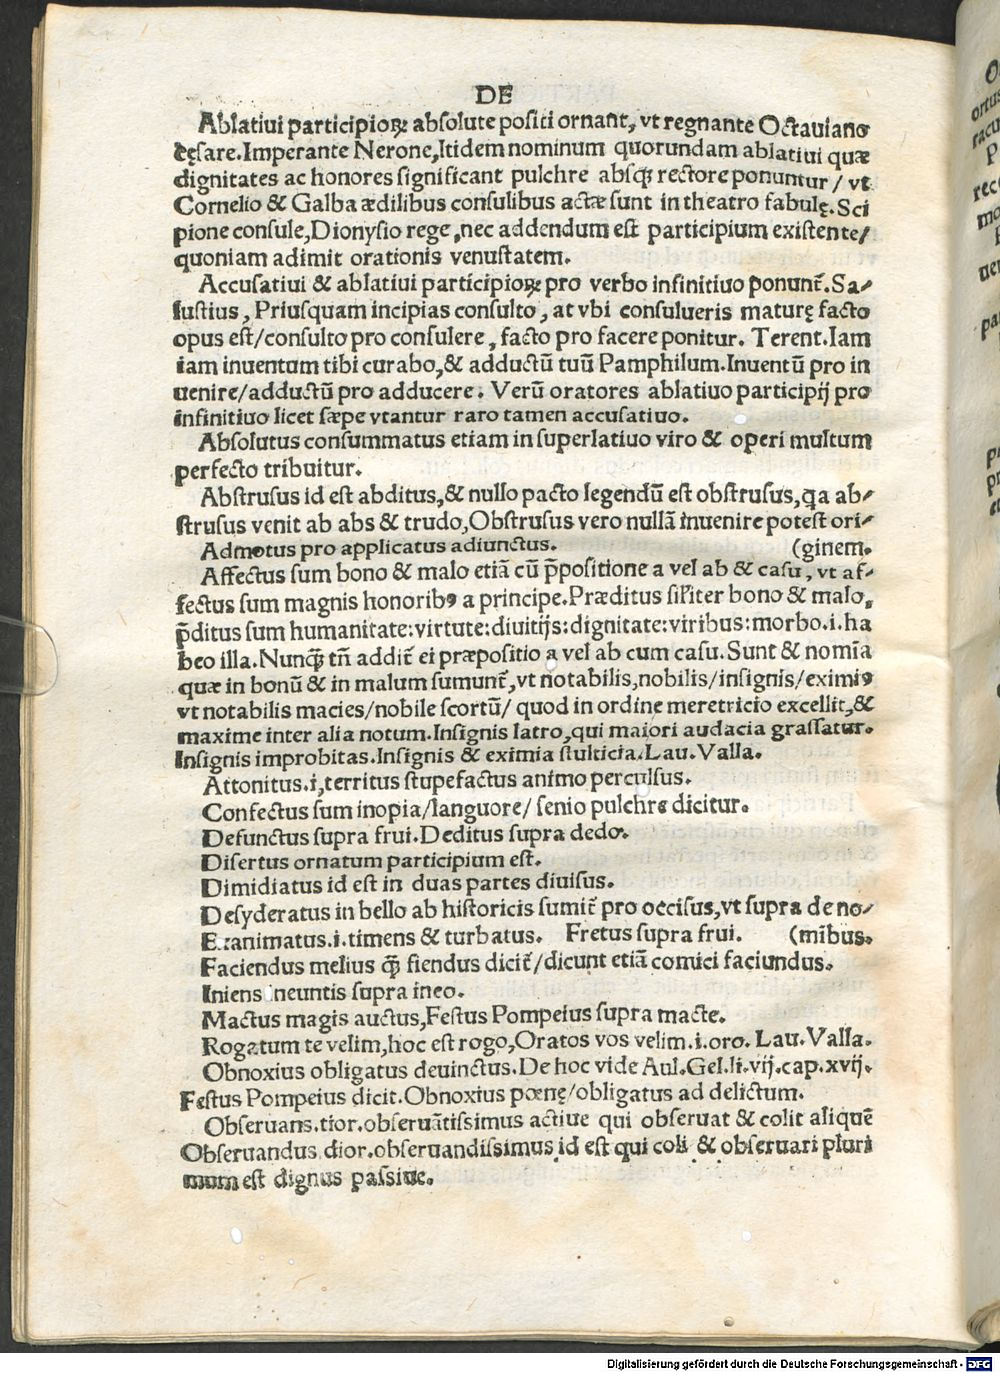 DE
Ablatiui participioꝝ absolute positi ornant, vt regnante Octauiano
cęsare. Imperante Nerone, Itidem nominum quorundam ablatiui quæ
dignitates ac honores significant pulchre absqꝫ rectore ponuntur / vt
Cornelio & Galba ædilibus consulibus actæ sunt in theatro fabulę. Sci
pione consule, Dionysio rege, nec addendum est participium existente/
quoniam adimit orationis venustatem.
Accusatiui & ablatiui participioꝝ pro verbo infinitiuo ponunt̃. Sa-/
lustius, Priusquam incipias consulto, at vbi consulueris maturę facto
opus est/consulto pro consulere, facto pro facere ponitur. Terent. Iam
iam inuentum tibi curabo, & adductū tuū Pamphilum. Inuentū pro in
uenire/adductū pro adducere. Verū oratores ablatiuo participij pro
infinitiuo licet sæpe vtantur raro tamen accusatiuo.
Absolutus consummatus etiam in superlatiuo viro & operi multum
perfecto tribuitur.
Abstrusus id est abditus, & nullo pacto legendū est obstrusus, qa ab-/
strusus venit ab abs & trudo, Obstrusus vero nullā inuenire potest ori-/
Admotus pro applicatus adiunctus. (ginem.
Affectus sum bono & malo etiā cū p̄positione a vel ab & casu, vt af-/
fectus sum magnis honoribꝰ a principe. Præditus sil̃iter bono & malo,
p̄ditus sum humanitate: virtute: diuitijs: dignitate: viribus: morbo .i. ha
beo illa. Nunqꝫ tñ addit̃ ei præpositio a vel ab cum casu. Sunt & nomīa
quæ in bonū & in malum sumunt̃, vt notabilis, nobilis/insignis/eximiꝰ
vt notabilis macies/nobile scortū/ quod in ordine meretricio excellit, &
maxime inter alia notum. Insignis latro, qui maiori audacia grassatur.
Insignis improbitas. Insignis & eximia stulticia. Lau. Valla.
Attonitus .i, territus stupefactus animo perculsus.
Confectus sum inopia/languore/ senio pulchre dicitur.
Defunctus supra frui. Deditus supra dedo.
Disertus ornatum participium est.
Dimidiatus id est in duas partes diuisus.
Desyderatus in bello ab historicis sumit̃ pro occisus, vt supra de no-/
Exanimatus .i. timens & turbatus. Fretus supra frui. (mībus.
Faciendus melius qꝫ fiendus dicit̃/dicunt etiā comici faciundus.
Iniens ineuntis supra ineo.
Mactus magis auctus, Festus Pompeius supra macte.
Rogatum te velim, hoc est rogo, Oratos vos velim .i. oro. Lau. Valla.
Obnoxius obligatus deuinctus. De hoc vide Aul. Gel. li. vij. cap. xvij.
Festus Pompeius dicit. Obnoxius pœnę/obligatus ad delictum.
Obseruans .tior. obseruātissimus actiue qui obseruat & colit aliquē
Obseruandus dior. obseruandissimus id est qui coli & obseruari pluri
mum est dignus passiue.
Digitalisierung gefördert durch die Deutsche Forschungsgemeinschaft - DFG